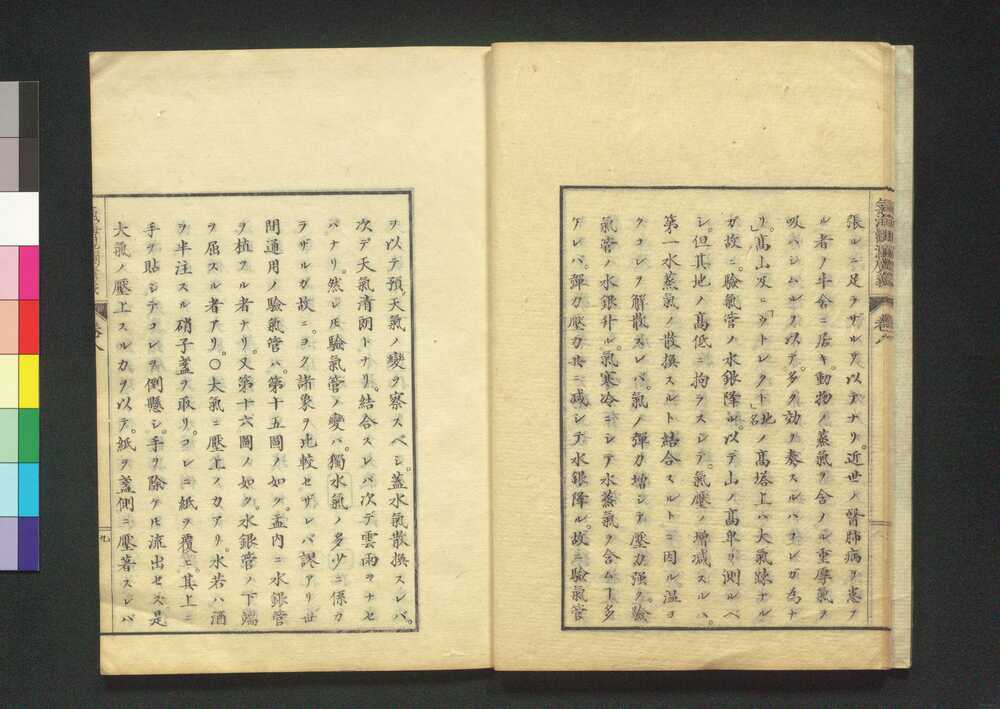 張ルニ足ラザルヲ以テナリ。近世ノ醫肺病ヲ患フ
ル者ノ牛舎ニ居キ。動物ノ蒸氣ヲ含ノル重厚氣ヲ
吸ハシムルヲ以テ。多ク効ヲ奏スルハコレガ為ナ
リ。高山及ニ「ウトレクト」地名ノ高塔上ハ大氣疎ナル
ガ故ニ。驗氣管ノ水銀降ル。以テ山ノ高卑ヲ測ルベ
シ。但其地ノ高低ニ拘ラスシテ。氣壓ノ增減スルハ。
第一水蒸氣ノ散撒スルト結合スルトニ因ル温ヨ
クコレヲ解散スレバ。氣ノ彈力增シテ壓力强ク。驗
氣管ノ水銀升ル。氣寒冷ニシテ水蒸氣ヲ含ムヿ多
ケレバ。彈力壓力共ニ減シテ水銀降ル。故ニ驗氣管
ヲ以テ預。天氣ノ變ヲ察スベシ。蓋水氣散撒スレバ。
次デ天氣清朗トナリ。結合スレバ次デ雲雨ヲナセ
バナリ。然レ𪜈驗氣管ノ變ハ。獨水氣ノ多少ニ係カ
ラザルガ故ニ。ヨク諸象ヲ比較セザレバ謬アリ世
間通用ノ驗氣管ハ。第十五圖ノ如ク。盂内ニ水銀管
ヲ植フル者ナリ。又第十六圖ノ如ク。水銀管ノ下端
ヲ屈スル者アリ。〇大氣ニ壓上ノ力アリ。水若ハ酒
ヲ半注スル硝子盞ヲ取リ。コレニ紙ヲ覆ヒ。其上ニ
手ヲ貼シテコレヲ倒懸シ。手ヲ除ケ𪜈流出セス是
大氣ノ壓上スルカヲ以テ。紙ヲ盞側ニ壓著スレバ
九